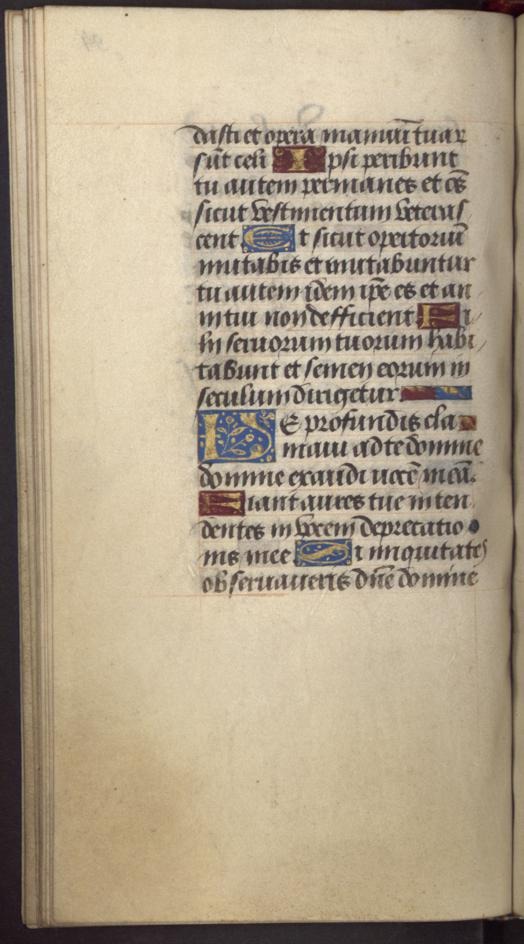 dasti et opera manuū tuar
sūt celi Ipsi peribunt
tu autem permanes et oēs
sicut vestimentum veteras
cent Et sicut opertoriū
mutabis et mutabuntur
tu autem idem ipē es et an
ni tui non defficient Fi
lii seruorum tuorum habi
tabunt et semen eorum in
seculum dirigetur
De profundis cla
maui ad te domine
domine exaudi uocē meā.
Fiant aures tue inten
dentes in vocem deprecatio
nis mee Si iniquitates
obseruaueris dn̄e domine